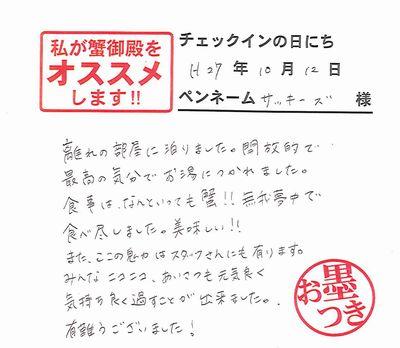 私が蟹御殿を
オススメ
します!!
チェックインの日にち
H27年10月12日
ペンネーム サッキーズ 様
離れの部屋に泊りました。開放的で
最高の気分でお湯につかれました。
食事は、なんといっても蟹!!無我夢中で
食べ尽しました。美味しい!!
また、ここの魅力はスタッフさんにも有ります。
みんなニコニコ、あいさつも元気良く
気持ち良く過すことが出来ました。
有難うございました!
お墨つき